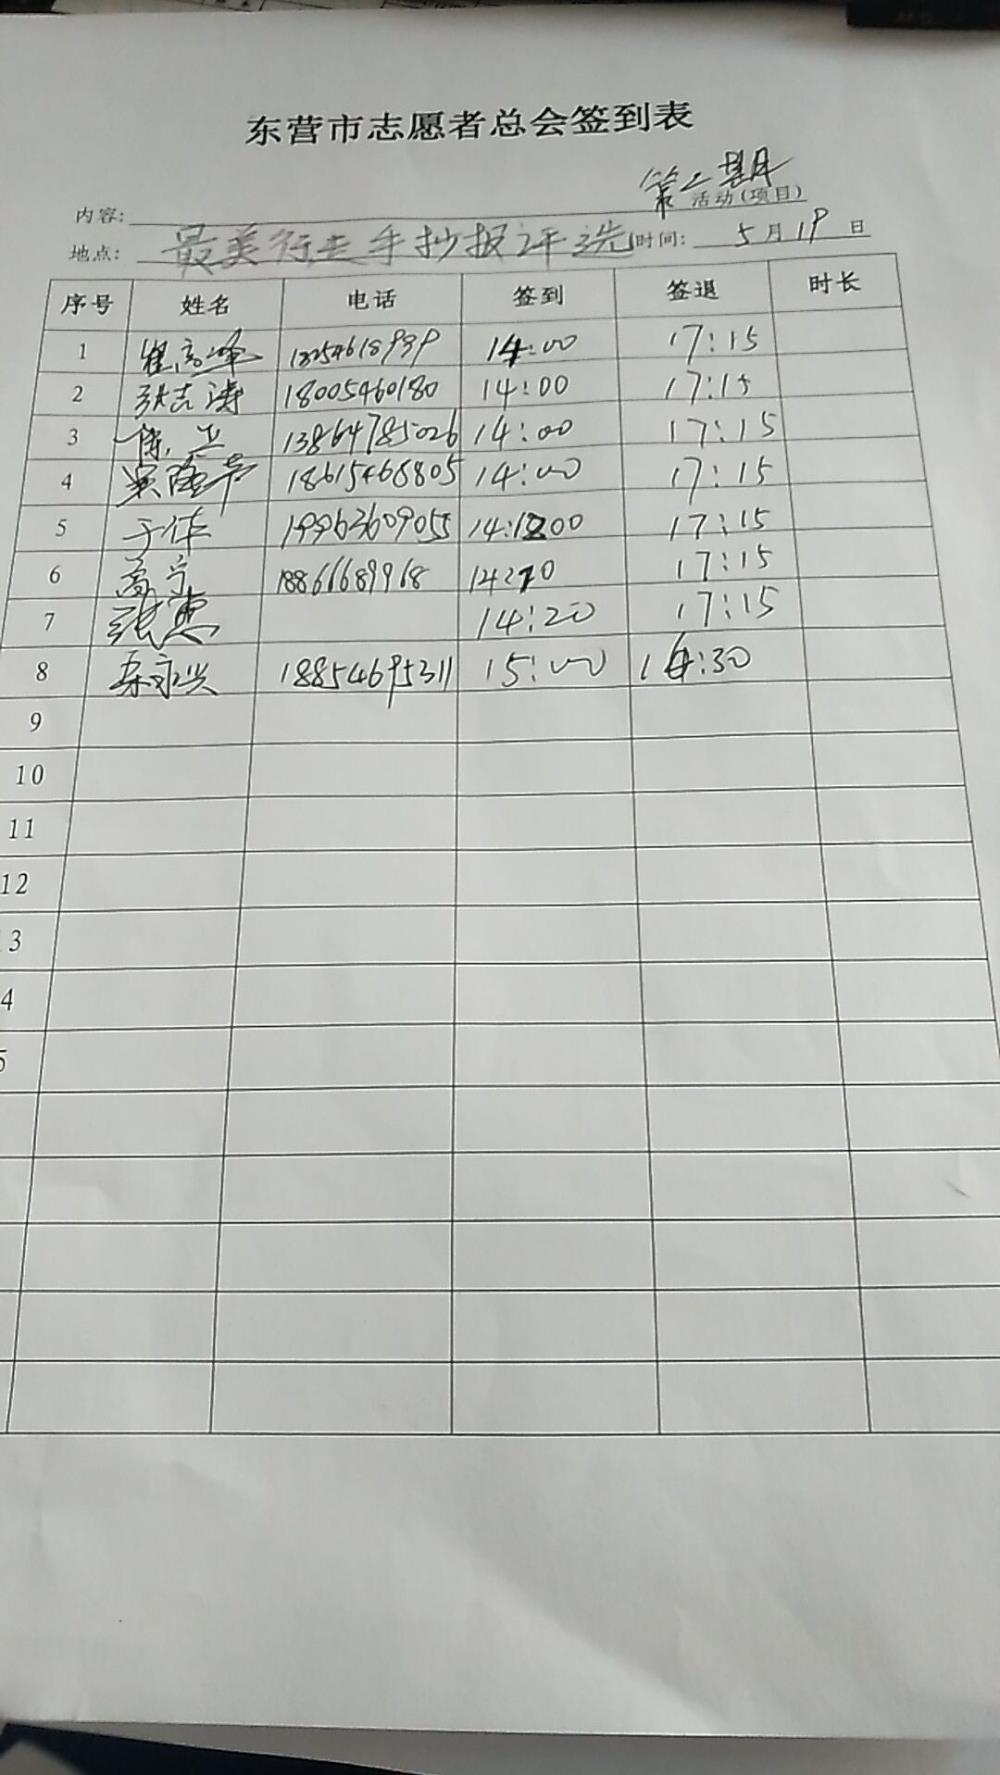 东营市志愿者总会签到表
第二期
内容: 活动(项目)
地点: 最美行走手抄报评选 时间: 5月19日
序号 姓名 电话 签到 签退 时长
1 崔高峰 14:00 17:15
2 张吉涛 18005460180 14:00 17:15
3 陈卫 13864785026 14:00 17:15
4 18615468805 14:00 17:15
5 于佳 19963609055 17:15
6 高宁 18866689968 17:15
7 张惠 14:20 17:15
8 栾永兴 18854695311 15:00 16:30
9
10
11
12
3
4
5